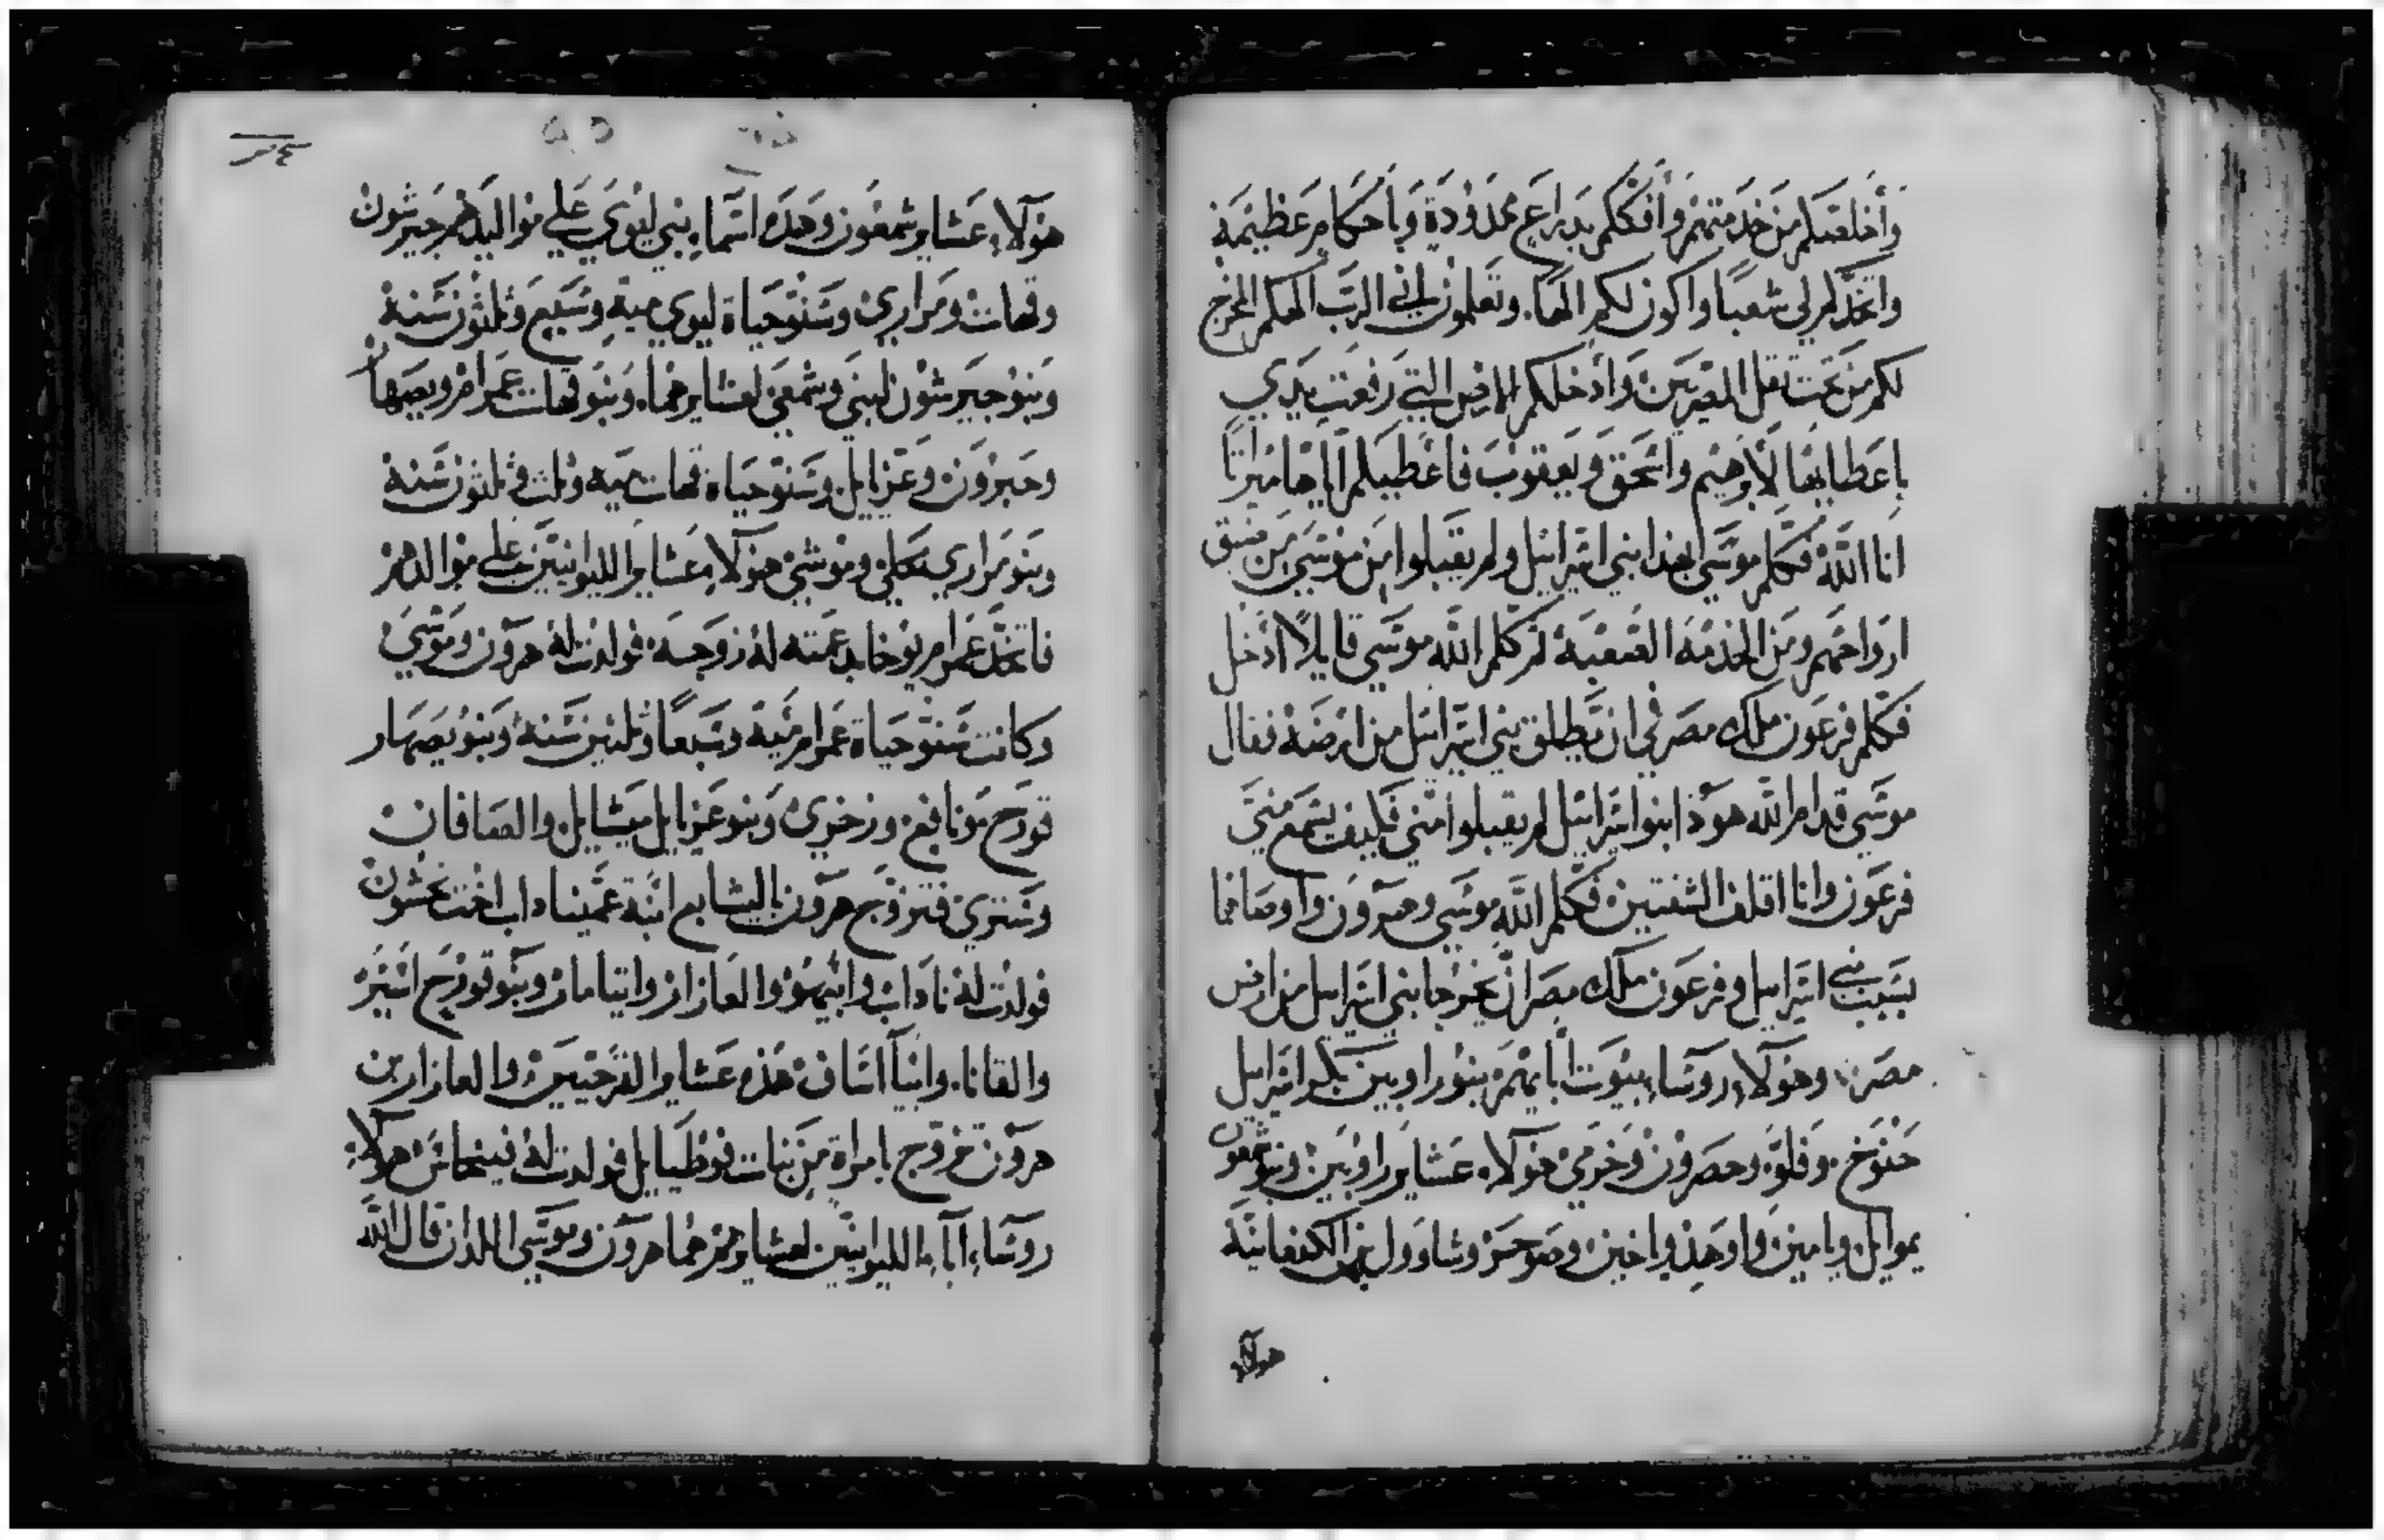 وأخلصكم من خدمتهم وأفككم بدراع ممدودة وبأحكام عظيمة
واتخدكم لي شعبًا واكون لكم الها. وتعلمون اني الرب الهكم المخرج
لكم من تحت ثقل المصريين وادخلكم الارض التي رفعت يدي
باعطايها لابرهيم واسحق ويعقوب فاعطيكم اياها ميراثا
انا الله فكلم موسي بهذا بني اسرائيل ولم يقبلوا من موسي من ضيق
ارواحهم ومن الخدمة الصعبة ثم كلم الله موسي قايلاً ادخل
فكلم فرعون ملك مصر في ان يطلق بني اسرائيل من ارضه فقال
موسي قدام الله هوذا بنوا اسرائيل لم يقبلوا مني فكيف يسمع مني
فرعون وانا اقلف الشفتين فكلم الله موسي وهرون واوصاهما
بسبب بني اسراييل وفرعون ملك مصر ان يخرجا بني اسراييل من ارض
مصر وهولاء روساء بيوت ابايهم بنو راوبين بكر اسراييل
حنوخ. وفلو. وحصرون وخرمي هولاء عشاير راوبين وبنو شمعون
يموايل ويامين واوهد وياخين وصوحر وشاوول بن الكنعانية
هولاء
هولاء عشاير شمعون وهذه اسماء بني ليوي علي مواليدهم جيرشون
وقهات ومراري وسنو حياة ليوي مية وسبع وثلثون سنة
وبنو جيرشون لبني وشمعي لعشايرهما. وبنو قهات عمرام ويصهار
وحبرون وعزيايل وسنو حياة قهات ميه وثلث وثلثون سنة
وبنو مراري محلي وموشي هولاء عشاير الليوانيين علي موالدهم
فاتخد عمرام يوخابد عمته له زوجه فولدت له هرون وموسي
وكانت سنو حياة عمرام مية وسبعًا وثلثين سنة وبنو يصهار
قورح ونافج وزخري وبنو عزيايل ميشايل والصافان
وستري فتزوج هرون اليشابع ابنة عميناداب اخت نحشون
فولدت له ناداب وابيهو والعازار وايتامار وبنو قورح اسير
والقانا. وابياساف هذه عشاير القرحيين والعازار بن
هرون تزوج بامراة من بنات فوطيايل فولدت له فينحاس هولاء
روساء اباء الليوانيين لعشايرهم هما هرون وموسي اللدان قال الله